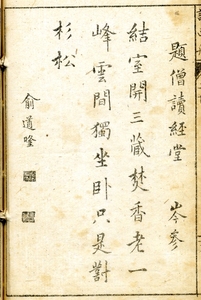 題僧讀經堂 岑參
結室開三藏焚香老一
峰雲間獨坐臥只是對
杉松
俞道隆